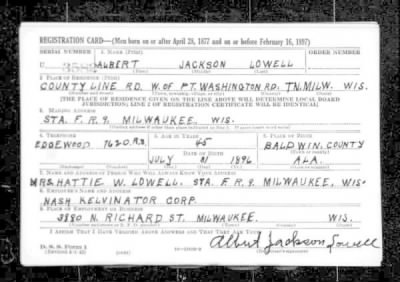 REGISTRATION CARD—(Men born on or after April 28, 1877 and on or before February 16, 1897)
SERIAL NUMBER 1. NAME (Print) ORDER NUMBER
U ALBERT JACKSON LOWELL
(First) (Middle) (Last)
2. PLACE OF RESIDENCE (Print)
COUNTY LINE RD. W. OF PT. WASHINGTON RD. TN. MILW. WIS.
(Number and street) (Town, township, village, or city) (County) (State)
[THE PLACE OF RESIDENCE GIVEN ON THE LINE ABOVE WILL DETERMINE LOCAL BOARD
JURISDICTION; LINE 2 OF REGISTRATION CERTIFICATE WILL BE IDENTICAL]
3. MAILING ADDRESS
STA. F. R. 9. MILWAUKEE. WIS.
[Mailing address if other than place indicated on line 2. If same insert word same]
4. TELEPHONE 5. AGE IN YEARS 6. PLACE OF BIRTH
EDGEWOOD 7620.R.3. 45 BALDWIN, COUNTY
DATE OF BIRTH (Town or county)
JULY 31 1896 ALA.
(Mo.) (Day) (Yr.) (State or country)
7. NAME AND ADDRESS OF PERSON WHO WILL ALWAYS KNOW YOUR ADDRESS
MRS HATTIE W. LOWELL. STA. F. R. 9. MILWAUKEE, WIS.
8. EMPLOYER'S NAME AND ADDRESS
NASH KELVINATOR CORP.
9. PLACE OF EMPLOYMENT OR BUSINESS
3880 N. RICHARD ST. MILWAUKEE. WIS.
(Number and street or R. F. D. number) (Town) (County) (State)
I AFFIRM THAT I HAVE VERIFIED ABOVE ANSWERS AND THAT THEY ARE TRUE.
D. S. S. Form 1
(Revised 4-1-42) (over)
Albert Jackson Lowell